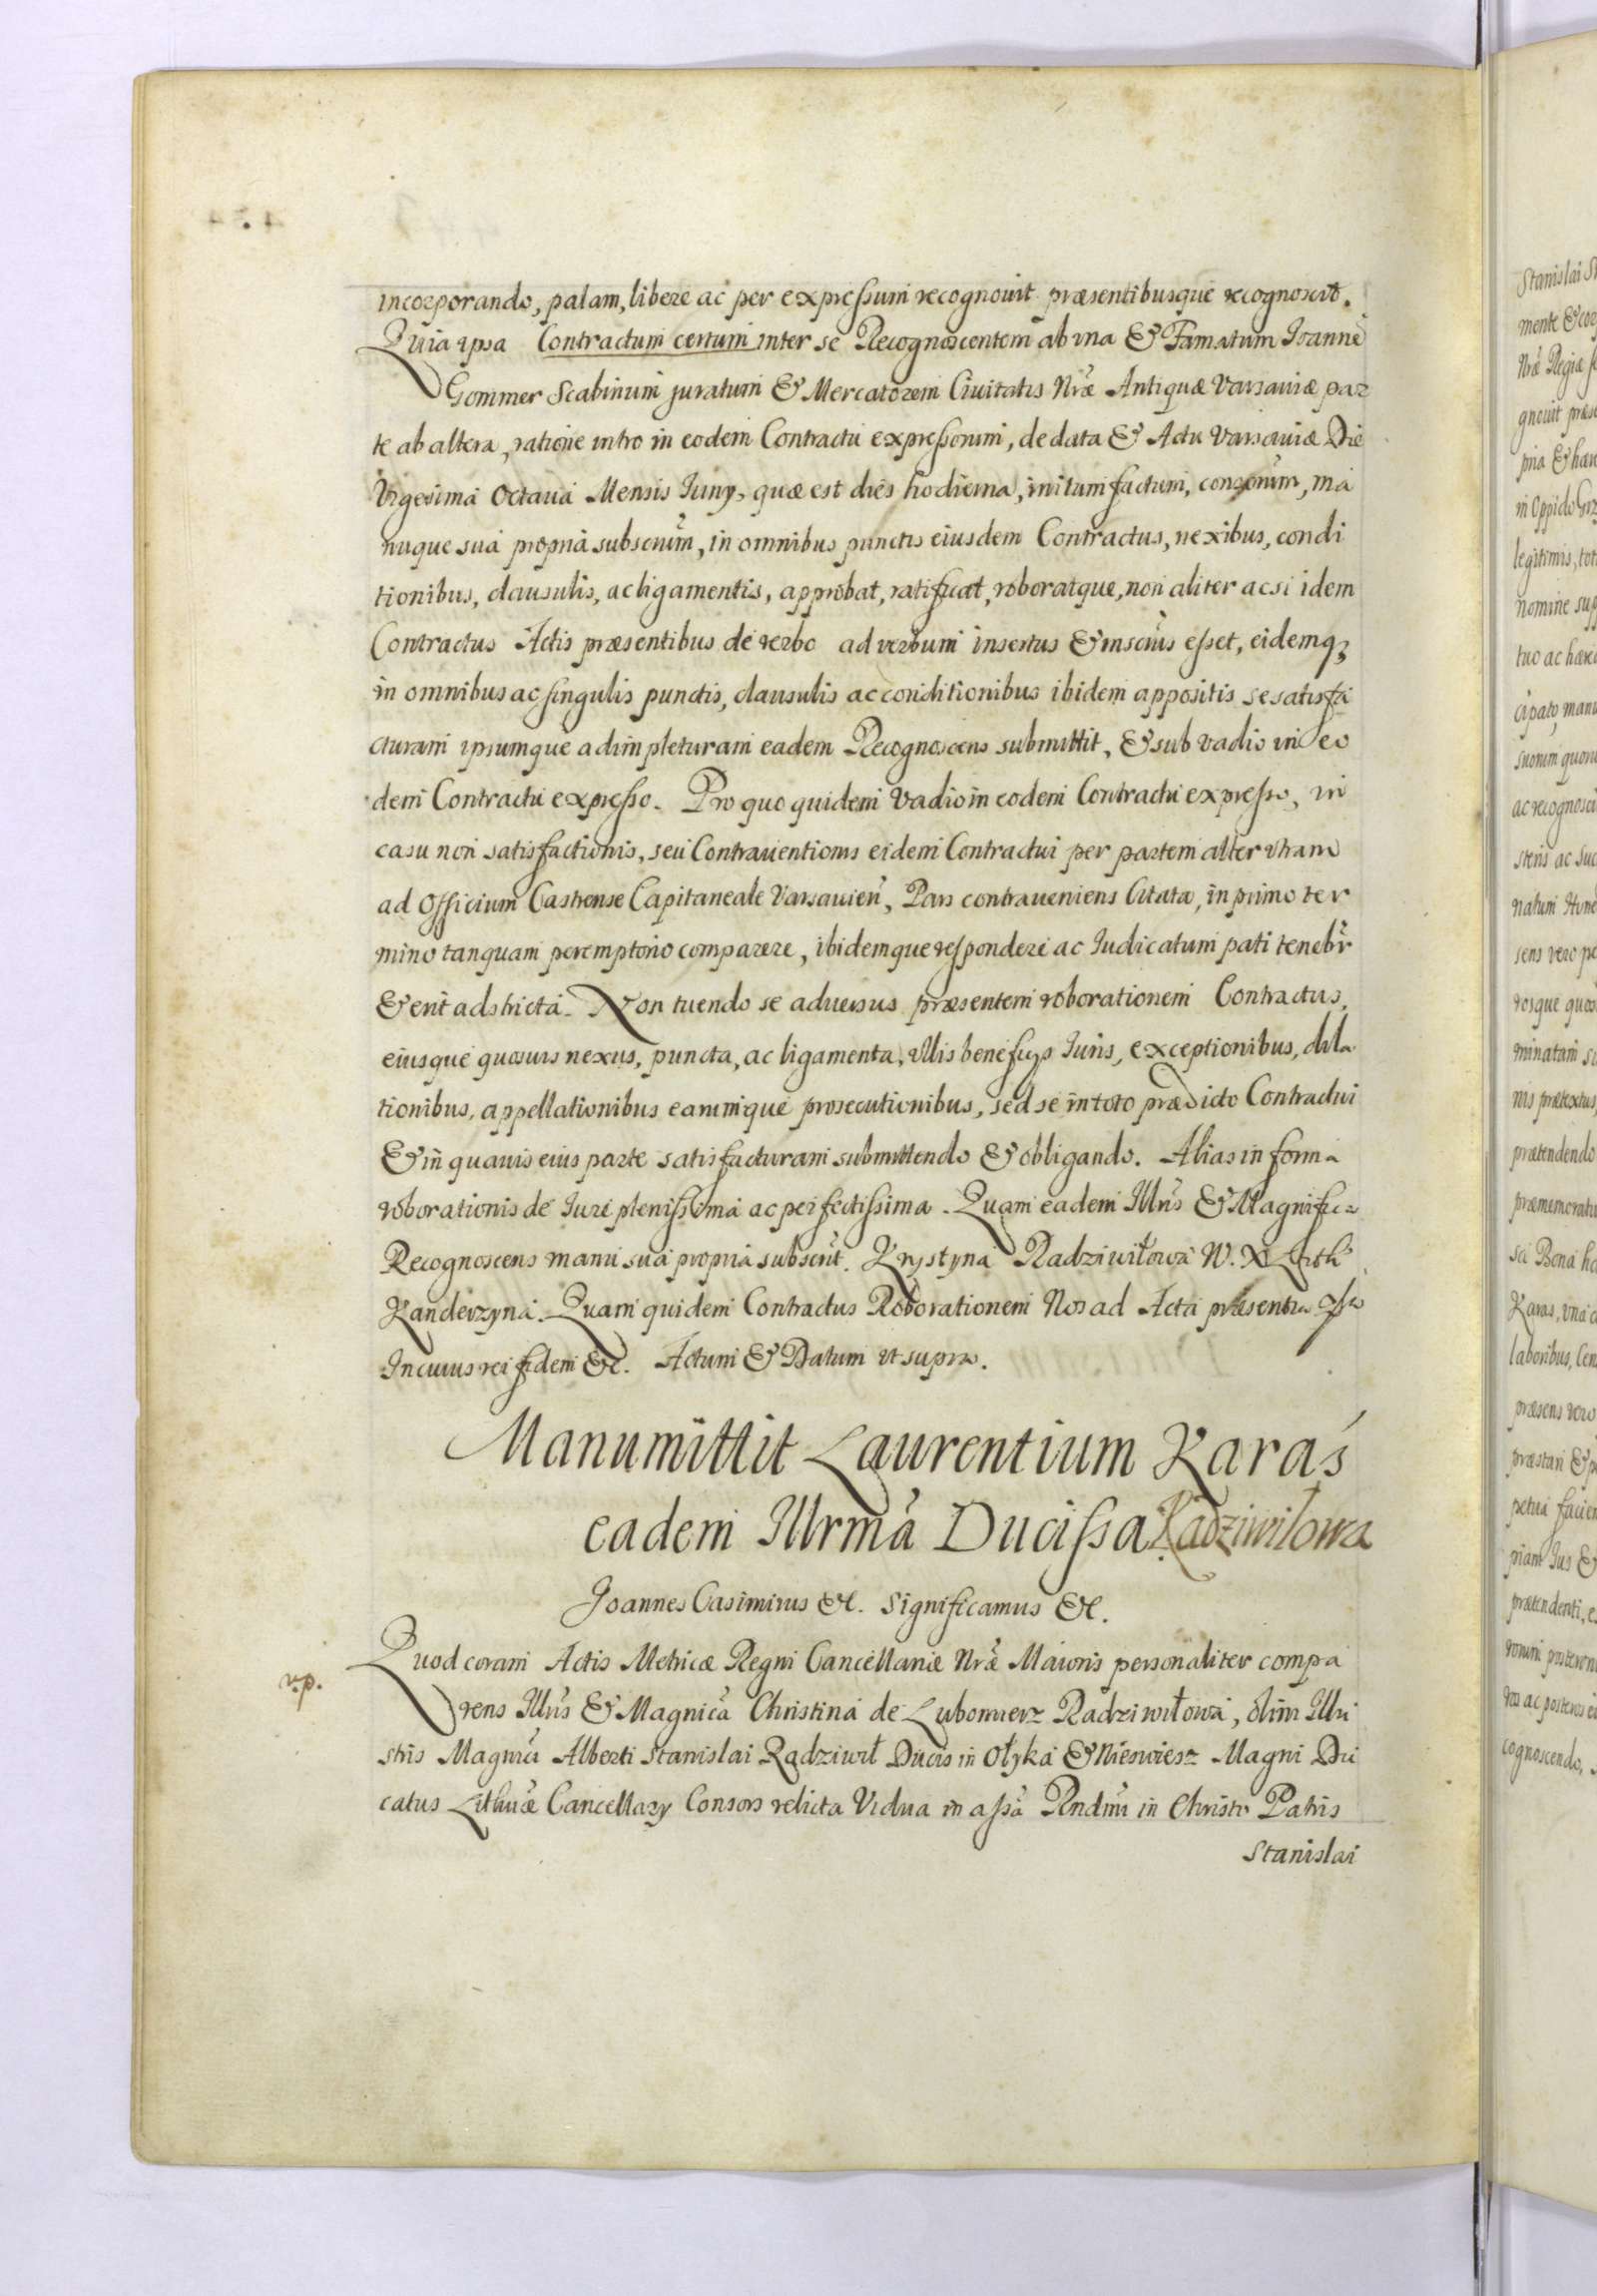 incorporando, palam, libere ac per expressum recognouit præsentibusque recognoscit.
Quia ipsa Contractum certum inter se Recognoscentem ab vna & Famatum Ioanne
Gommer Scabinum juratum & Mercatorem Ciuitatis Nræ Antiquæ Varsauiæ par
te ab altera, ratione intro in eodem Contractu expressorum, de data & Actu Varsauiæ Die
Vigesima Octaua Mensis Iuny, quæ est dies hodierna, initum factum, conscriptum, ma
nuque sua propria subscriptum, in omnibus punctis eiusdem Contractus, nexibus, condi
tionibus, clausulis, ac ligamentis, approbat, ratificat, roboratque, non aliter ac si idem
Contractus Actis præsentibus de verbo ad verbum insertus & inscrius esset, eidemq;
in omnibus ac singulis punctis, clausulis ac conditionibus ibidem appositis se satisfa
cturam ipsumque adimpleturam eadem Recognoscens submittit, & sub vadio in eo
dem Contractu expresso. Pro quo quidem Vadio in eodem Contractu expresso, in
casu non satisfactionis, seu Contrauentionis eidem Contractui per partem alter vtram
ad Officium Castrense Capitaneale Varsauien, Pars contraueniens Citata, in primo ter
mino tanquam peremptorio comparere, ibidemque respondere ac Iudicatum pati tenebr
& erit adstricta. Non tuendo se aduersus præsentem roborationem Contractus,
eiusque quosuis nexus, puncta, ac ligamenta, vllis beneficys Iuris, exceptionibus, dila
tionibus, appellationibus earumque prosecutionibus, sed se in toto prædicto Contractui
& in quauis eius parte satisfacturam submittendo & obligando. Alias in forma
roborationis de Iure plenissima ac perfectissima. Quam eadem Illris & Magnifica
Recognoscens manu sua propria subscrit. Krystyna Radziwiłowa W. X Lith
Kanderzyna. Quam quidem Contractus Roborationem Nos ad Acta præsentia
In cuius rei fidem &c. Actum & Datum ut supra.
Manumittit Laurentium Karaś
eadem Illrma Ducissa Radziwiłowa
Joannes Casimirus &c. Significamus &c.
Quod coram Actis Metricæ Regni Cancellariæ Nræ Maioris personaliter compa
r.p.
rens Illris & Magnica Christina de Lubomierz Radziwiłowa, olim Illu
stris Magnici Alberti Stanislai Radziwił Ducis in Ołyka & Nieswiesz Magni Du
catus Lithuæ Cancellary Consors relicta Vidua in assa Rndmi in Christo Patris
Stanislai